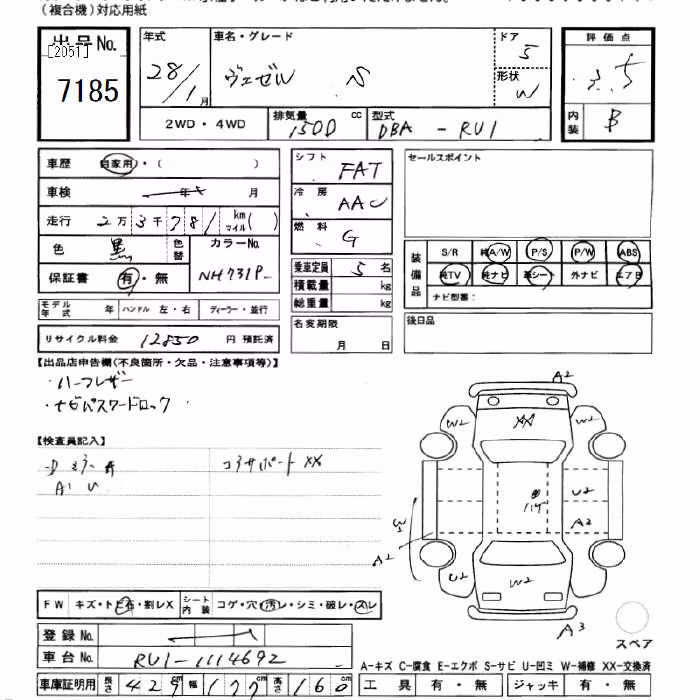 (複合機)対応用紙
出品No.
[2051]
7185
年式 28/1月
車名・グレード ヴェゼル S
ドア 5
形状 W
評価点 3.5
内装 B
2WD・4WD
排気量 1500 cc
型式 DBA - RU1
車歴 自家用・( )
車検 年 月
走行 2万3千781 km マイル( )
色 黒 色替
カラーNo. NH731P
保証書 有・無
モデル年式 年 ハンドル 左・右 ディーラー・並行
リサイクル料金 12850 円 預託済
シフト FAT
冷房 AAC
燃料 G
乗車定員 5名
積載量 kg
総重量 kg
名変期限 月 日
セールスポイント
装備品
S/R 純A/W P/S P/W ABS
純TV 純ナビ 革シート 外ナビ エアB
ナビ型番:
後日品
【出品店申告欄(不良箇所・欠品・注意事項等)】
・ハーフレザー
・ナビパスワードロック
【検査員記入】
コアサポートXX
A2
W2 XX W2
U2
A2
A2
U2 W2
A3
FW キズ・トビ石・割レX シート内装 コゲ・穴・汚レ・シミ・破レ・スレ
登録No.
車台No. RU1-1114692
車庫証明用 長さ 429cm 幅 177cm 高さ 160cm
スペア
A-キズ C-腐食 E-エクボ S-サビ U-凹ミ W-補修 XX-交換済
工具 有・無 ジャッキ 有・無